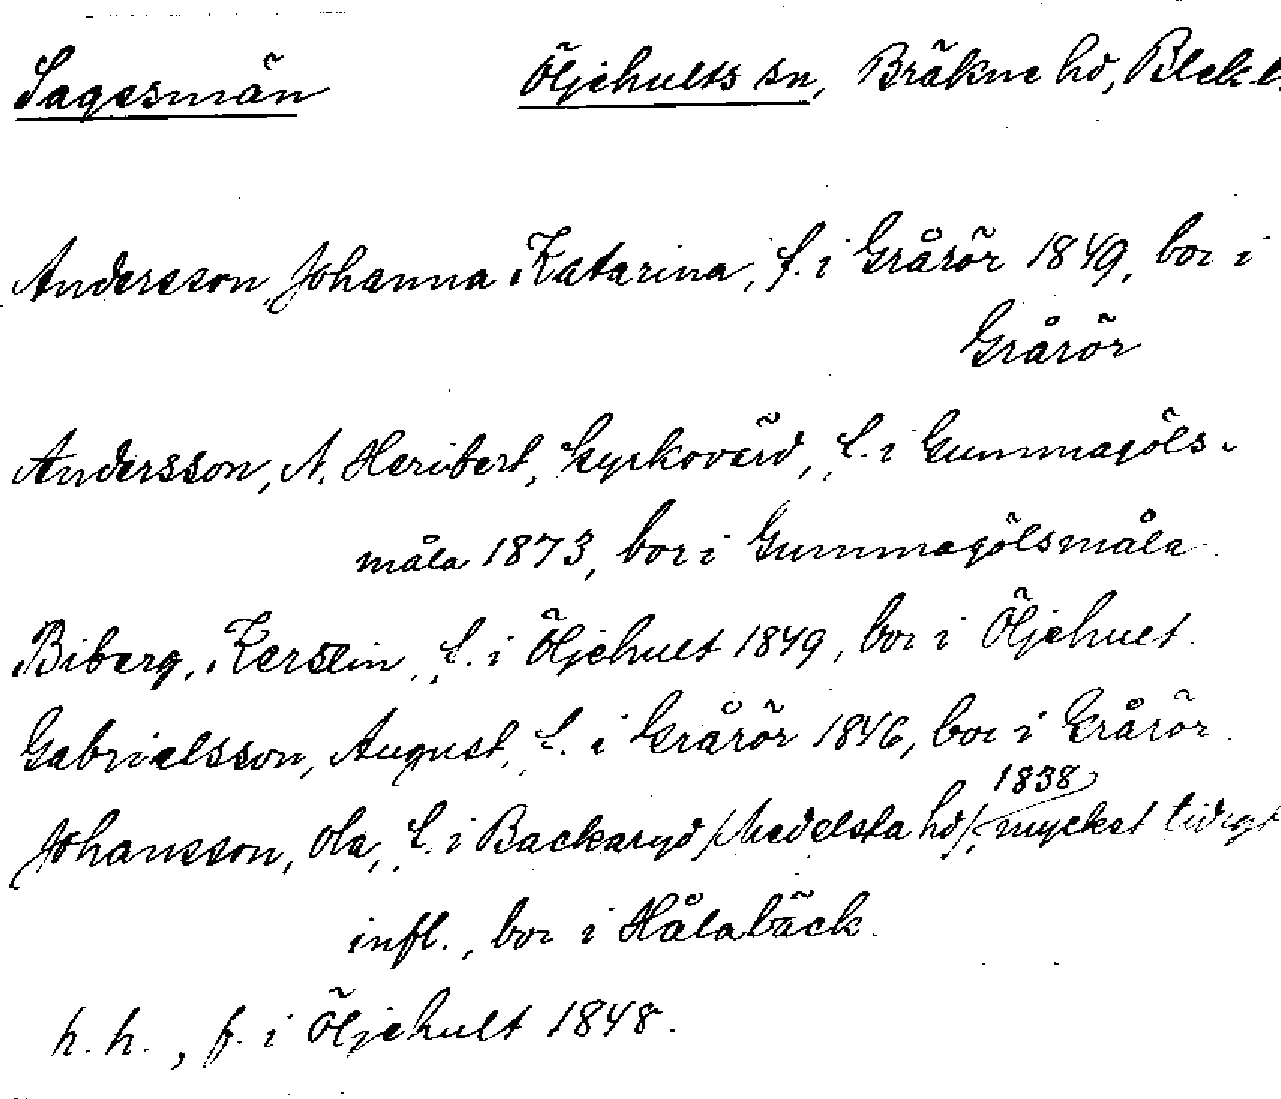 Sagesmän Öljehults sn, Bräkne hd, Blek.l.
Andersson Johanna Katarina, f. i Grårör 1849, bor i
Grårör
Andersson, A. Heribert, kyrkovärd, f. i Gummagöls-
måla 1873, bor i Gummagölsmåla.
Biberg, Kerstin, f. i Öljehult 1849, bor i Öljehult.
Gabrielsson, August, f. i Grårör 1846, bor i Grårör.
1838
Johansson, Ola, f. i Backaryd /Medelsta hd/, mycket tidigt
infl., bor i Hålabäck.
h. h., f. i Öljehult 1848.